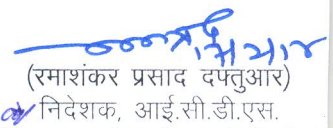 (रमाशंकर प्रसाद दफ्तुआर)
निदेशक, आई.सी.डी.एस.